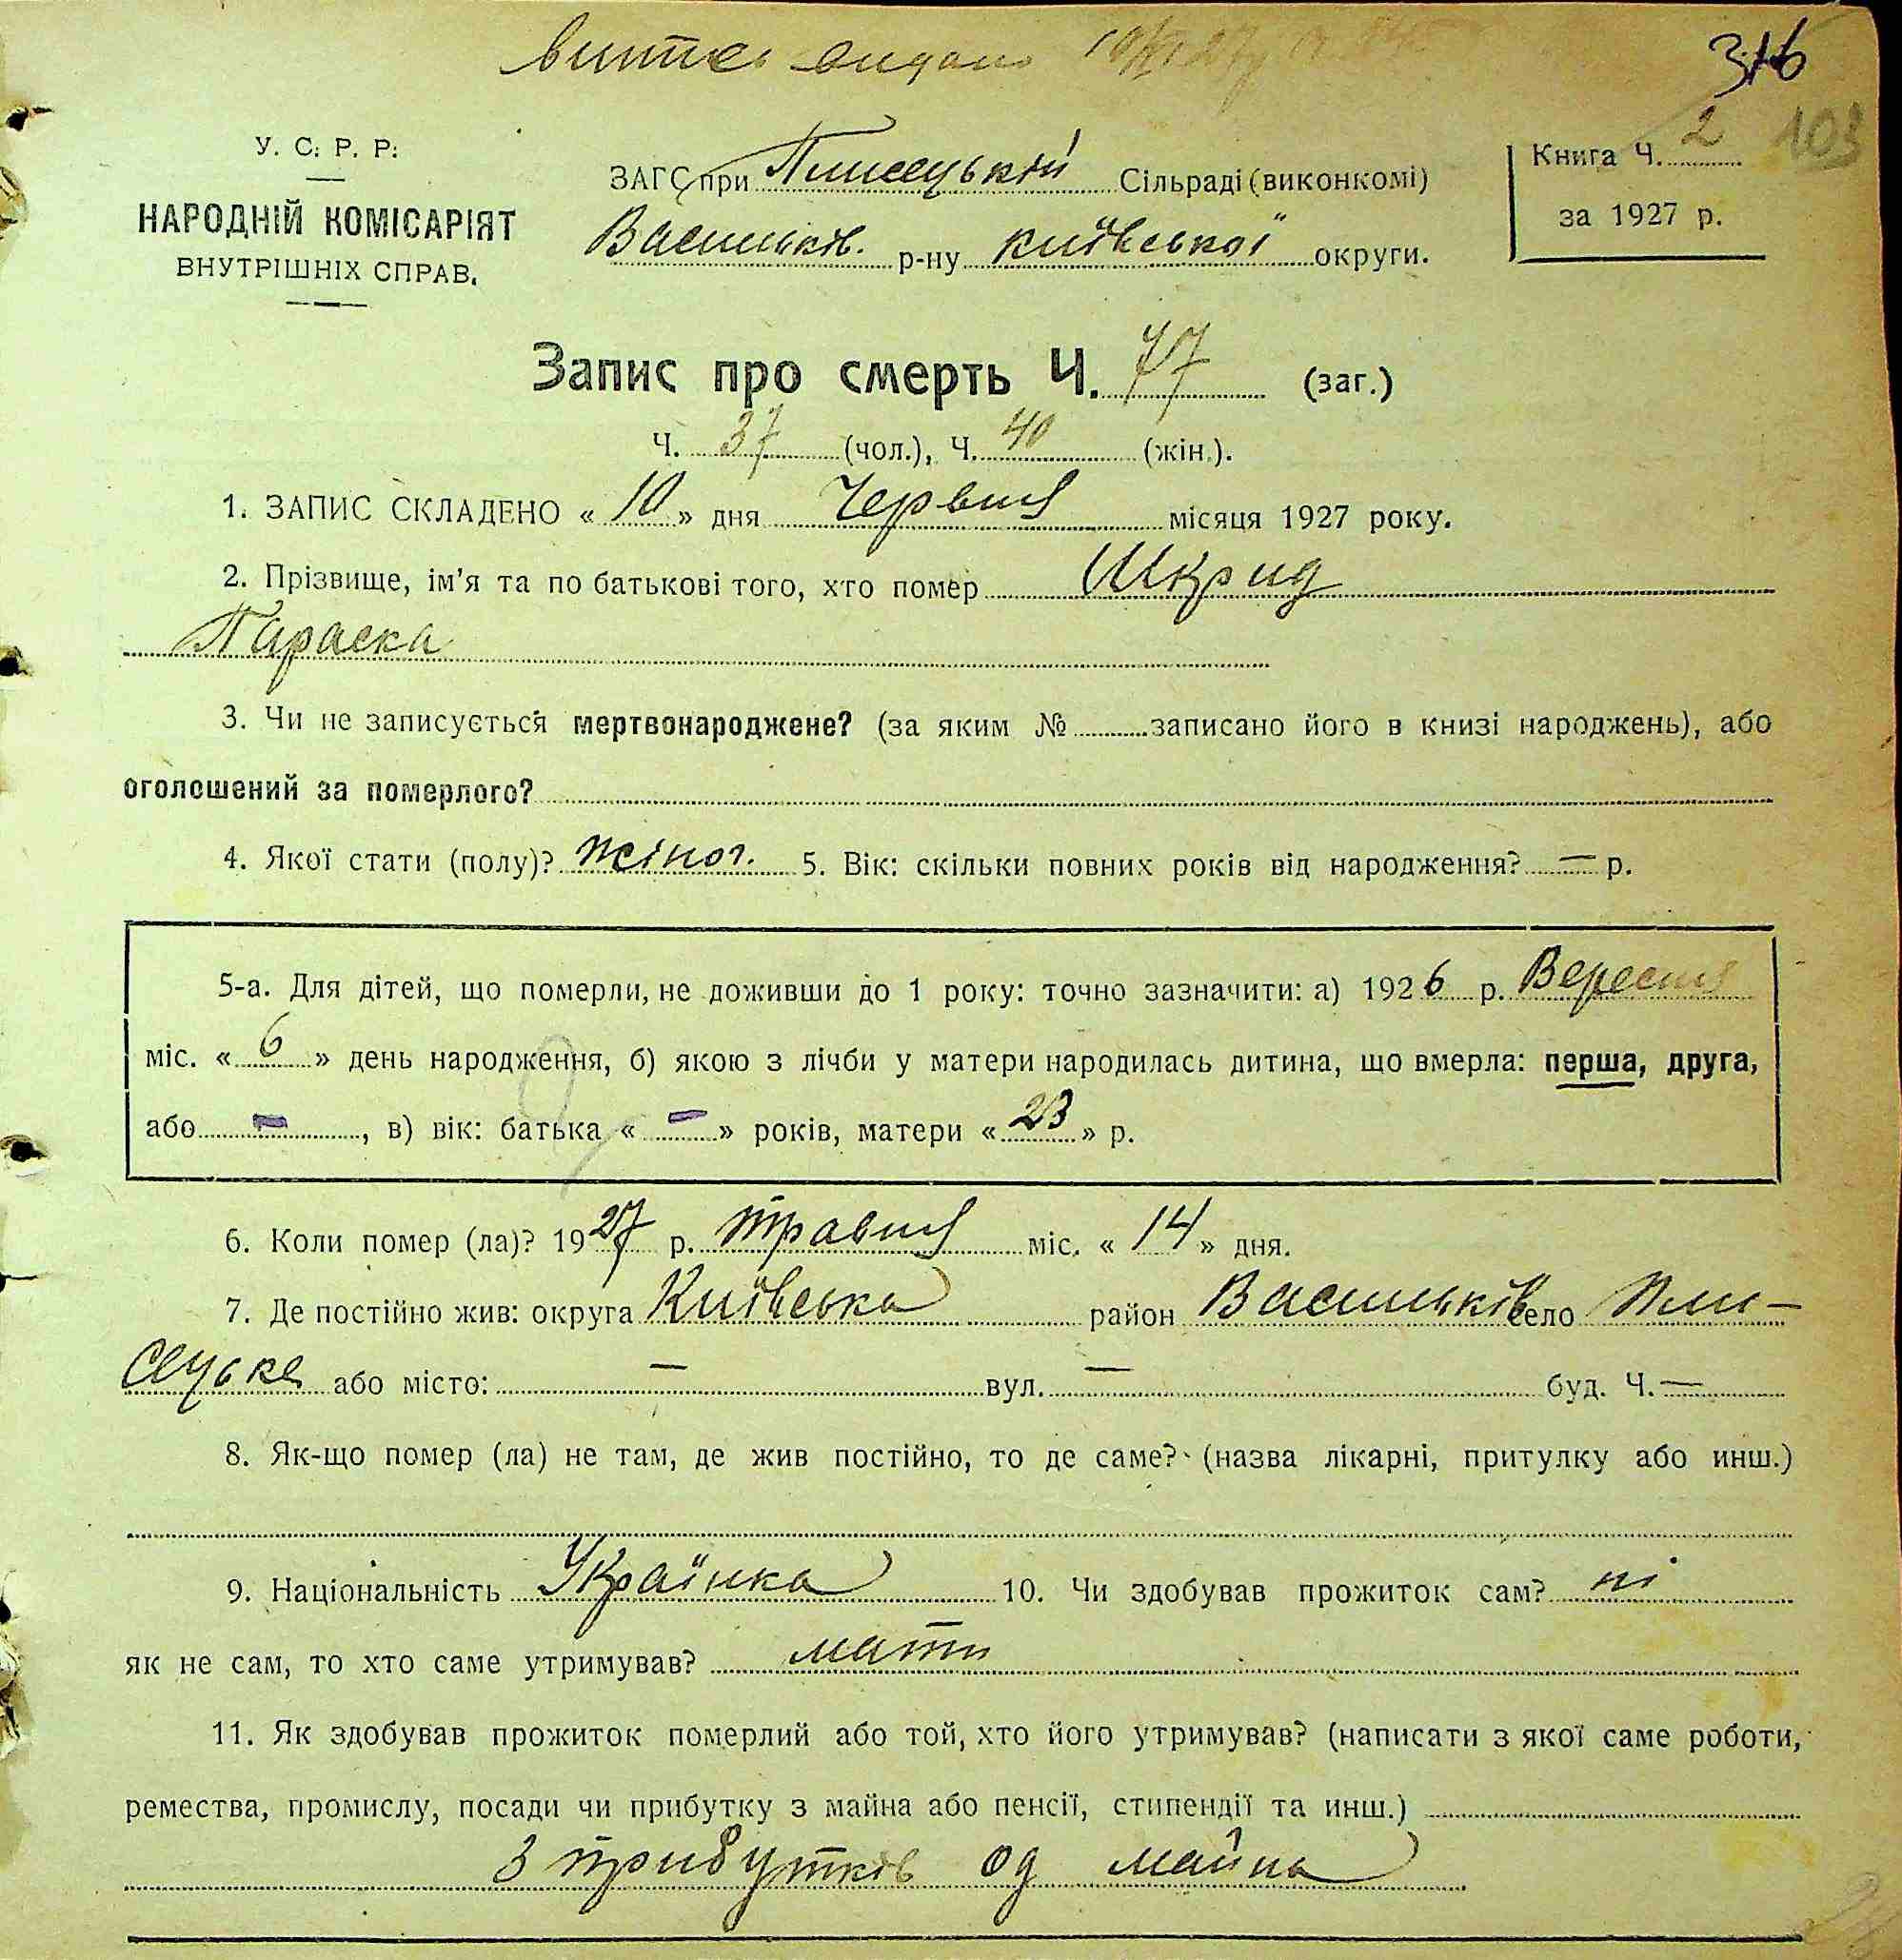 витяг видано 10/VI 27 р.
316
103
У. С. Р. Р.
НАРОДНІЙ КОМІСАРІЯТ
ВНУТРІШНІХ СПРАВ.
ЗАГС при Плисецькій Сільраді (виконкомі)
Васильків. р-ну Київської округи.
Книга Ч. 2
за 1927 р.
Запис про смерть Ч. 77 (заг.)
Ч. 37 (чол.), Ч. 40 (жін.).
1. ЗАПИС СКЛАДЕНО « 10 » дня Червня місяця 1927 року.
2. Прізвище, ім’я та по батькові того, хто помер Шкрид
Параска
3. Чи не записується мертвонароджене? (за яким № записано його в книзі народжень), або
оголошений за померлого?
4. Якої стати (полу)? жіноч. 5. Вік: скільки повних років від народження? — р.
5-а. Для дітей, що померли, не доживши до 1 року: точно зазначити: а) 1926 р. Вересня
міс. « 6 » день народження, б) якою з лічби у матери народилась дитина, що вмерла: перша, друга,
або —, в) вік: батька « — » років, матери « 23 » р.
6. Коли помер (ла)? 1927 р. травня міс. « 14 » дня.
7. Де постійно жив: округа Київська район Васильків село Пли-
сецьке або місто: — вул. — буд. Ч. —
8. Як-що помер (ла) не там, де жив постійно, то де саме? (назва лікарні, притулку або инш.)
9. Національність Українка 10. Чи здобував прожиток сам? ні
як не сам, то хто саме утримував? мати
11. Як здобував прожиток померлий або той, хто його утримував? (написати з якої саме роботи,
ремества, промислу, посади чи прибутку з майна або пенсії, стипендії та инш.)
З прибутків од майна